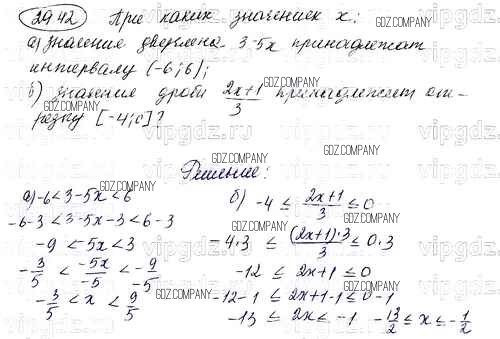 2942) При каких значениях x:
а) значение двучлена 3-5x принадлежат
интервалу (-6;6);
б) значение дроби \frac{2x+1}{3} принадлежит от-
резку [-4;0]?
Решение:
а) -6 < 3-5x < 6
-6-3 < 3-5x-3 < 6-3
-9 < -5x < 3
-\frac{3}{5} < \frac{-5x}{-5} < \frac{-9}{-5}
-\frac{3}{5} < x < \frac{9}{5}
б) -4 ≤ \frac{2x+1}{3} ≤ 0
-4·3 ≤ \frac{(2x+1)·3}{3} ≤ 0·3
-12 ≤ 2x+1 ≤ 0
-12-1 ≤ 2x+1-1 ≤ 0-1
-13 ≤ 2x ≤ -1   -\frac{13}{2} ≤ x ≤ -\frac{1}{2}
GDZ.COMPANY
vipgdz.ru